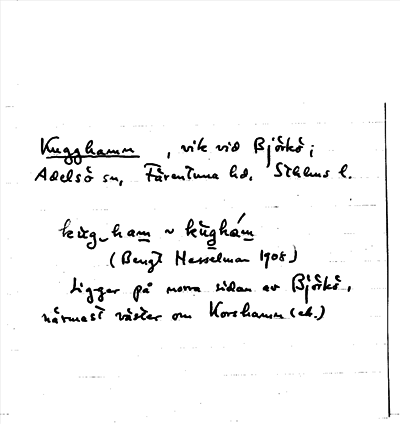 Kugghamn, vik vid Björkö;
Adelsö sn, Färentuna hd. Sthlms l.
kùg-ham ~ kùghám
(Bengt Hesselman 1908)
Ligger på norra sidan av Björkö,
närmast väster om Korshamn (ek.)